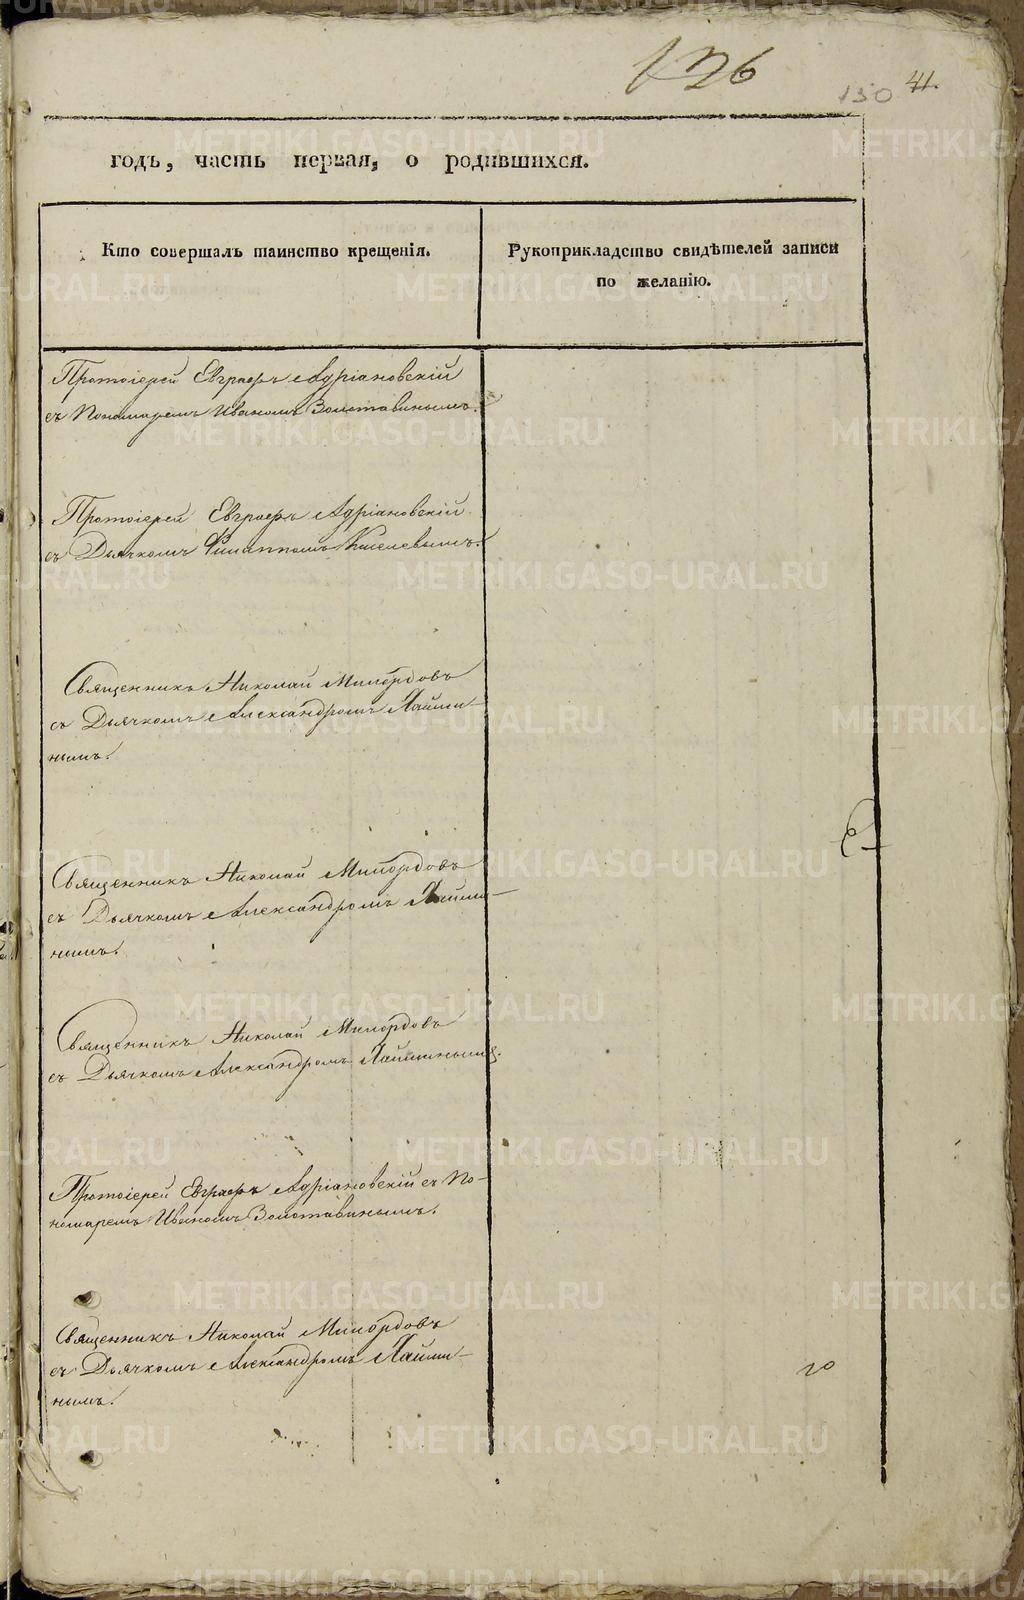 136
150 41.
годъ, часть первая, о родившихся.
Кто совершалъ таинство крещенія.
Рукоприкладство свидѣтелей записи
по желанію.
Протоіерей Евграфъ Адріановскій
съ Пономаремъ Иваномъ Золотавинымъ.
Протоіерей Евграфъ Адріановскій
съ Дьячкомъ Филиппомъ Киселевымъ.
Священникъ Николай Милордовъ
съ Дьячкомъ Александромъ Лайми-
нымъ.
Священникъ Николай Милордовъ
съ Дьячкомъ Александромъ Лайми-
нымъ.
Священникъ Николай Милордовъ
съ Дьячкомъ Александромъ Лайминымъ.
Протоіерей Евграфъ Адріановскій съ По-
номаремъ Иваномъ Золотавинымъ.
Священникъ Николай Милордовъ
съ Дьячкомъ Александромъ Лайми-
нымъ.
METRIKI.GASO-URAL.RU